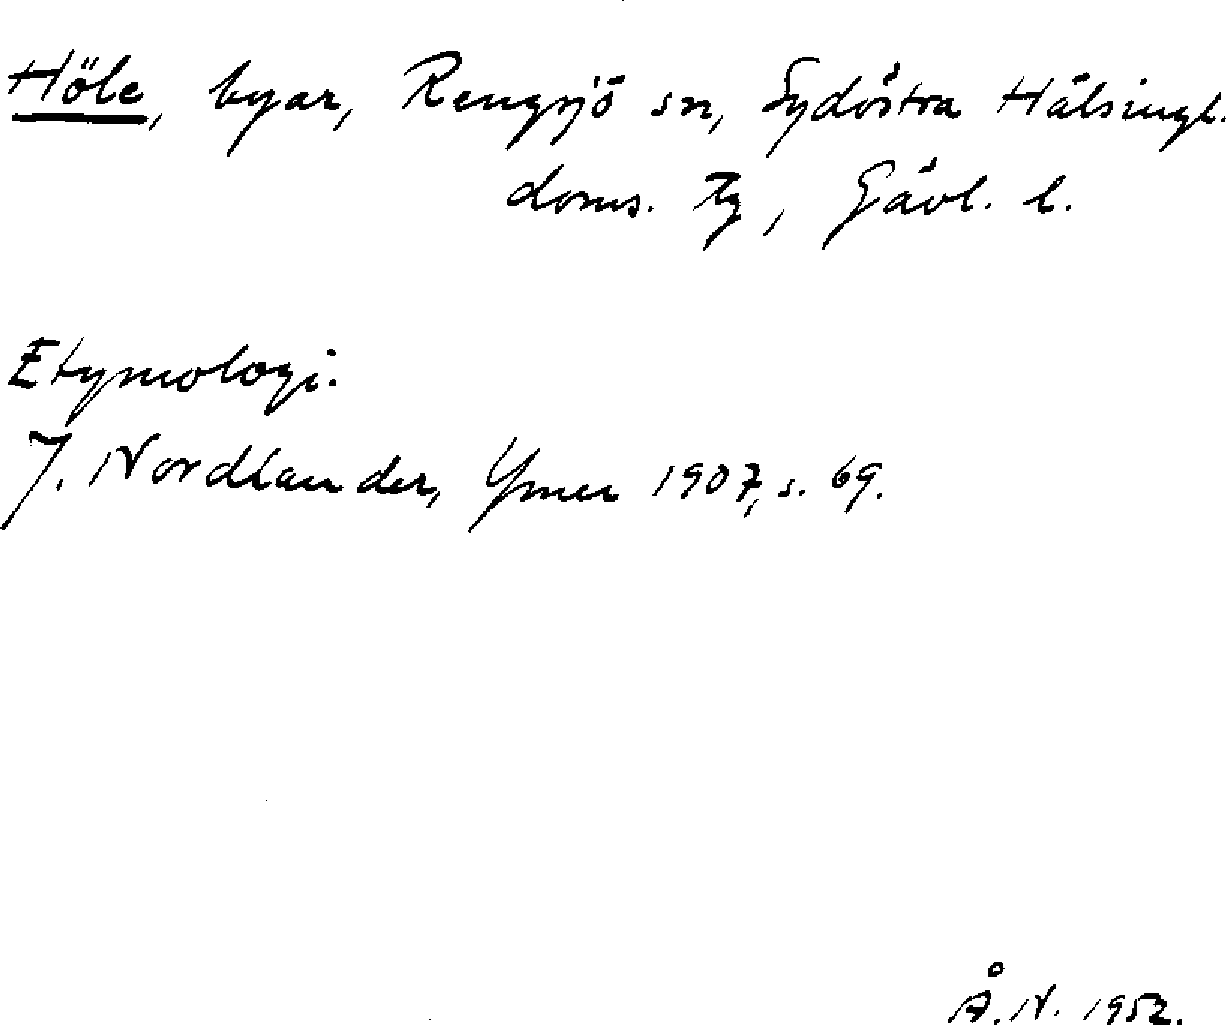 Höle, byar, Rengsjö sn, Sydöstra Hälsingl.
doms. Tg, Gävl. l.
Etymologi.
J. Nordlander, Ymer 1907, s. 69.
Å. N. 1952.